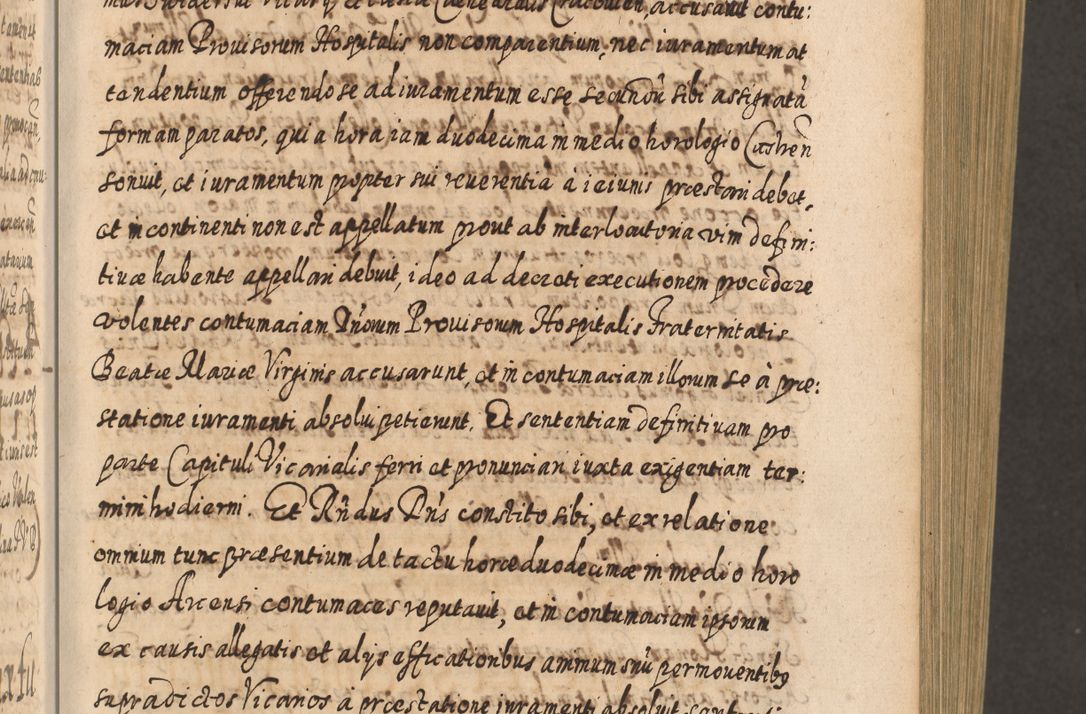 maciam Provisorum Hospitalis non comparentium, nec iuramentum at
tendentium offerendo se ad iuramentum esse secundũ sibi assignatã
formam paratos, quia hora iam duodecima in medio horologio Castreñ
sonuit, et iuramentum propter sui reverentiã a ieiunis præstari debet,
et in continenti non est appellatum prout ab interlocutoria vim defini:
tivæ habente appellari debuit, ideo ad decreti executionem procedere
volentes contumaciam Dñorum Provisorum Hospitalis Fraternitatis
Beatæ Mariæ Virginis accusarunt, et in contumaciam illorum se à præ:
statione iuramenti absolui petierunt. Et sententiam definitivam pro
parte Capituli Vicarialis ferri et pronunciari iuxta exigentiam ter:
mini hodierni. Et Rñdus Dñs constito sibi, et ex relatione
omnium tunc præsentium de tactu horæ duodecimæ in medio horo
logio Arcensi contumaces reputavit, et in contumaciam ipsorum
ex causis allegatis et alijs efficationibus animum suũ permoventibꝰ
supradictos Vicarios à præstatione iuramenti absoluit